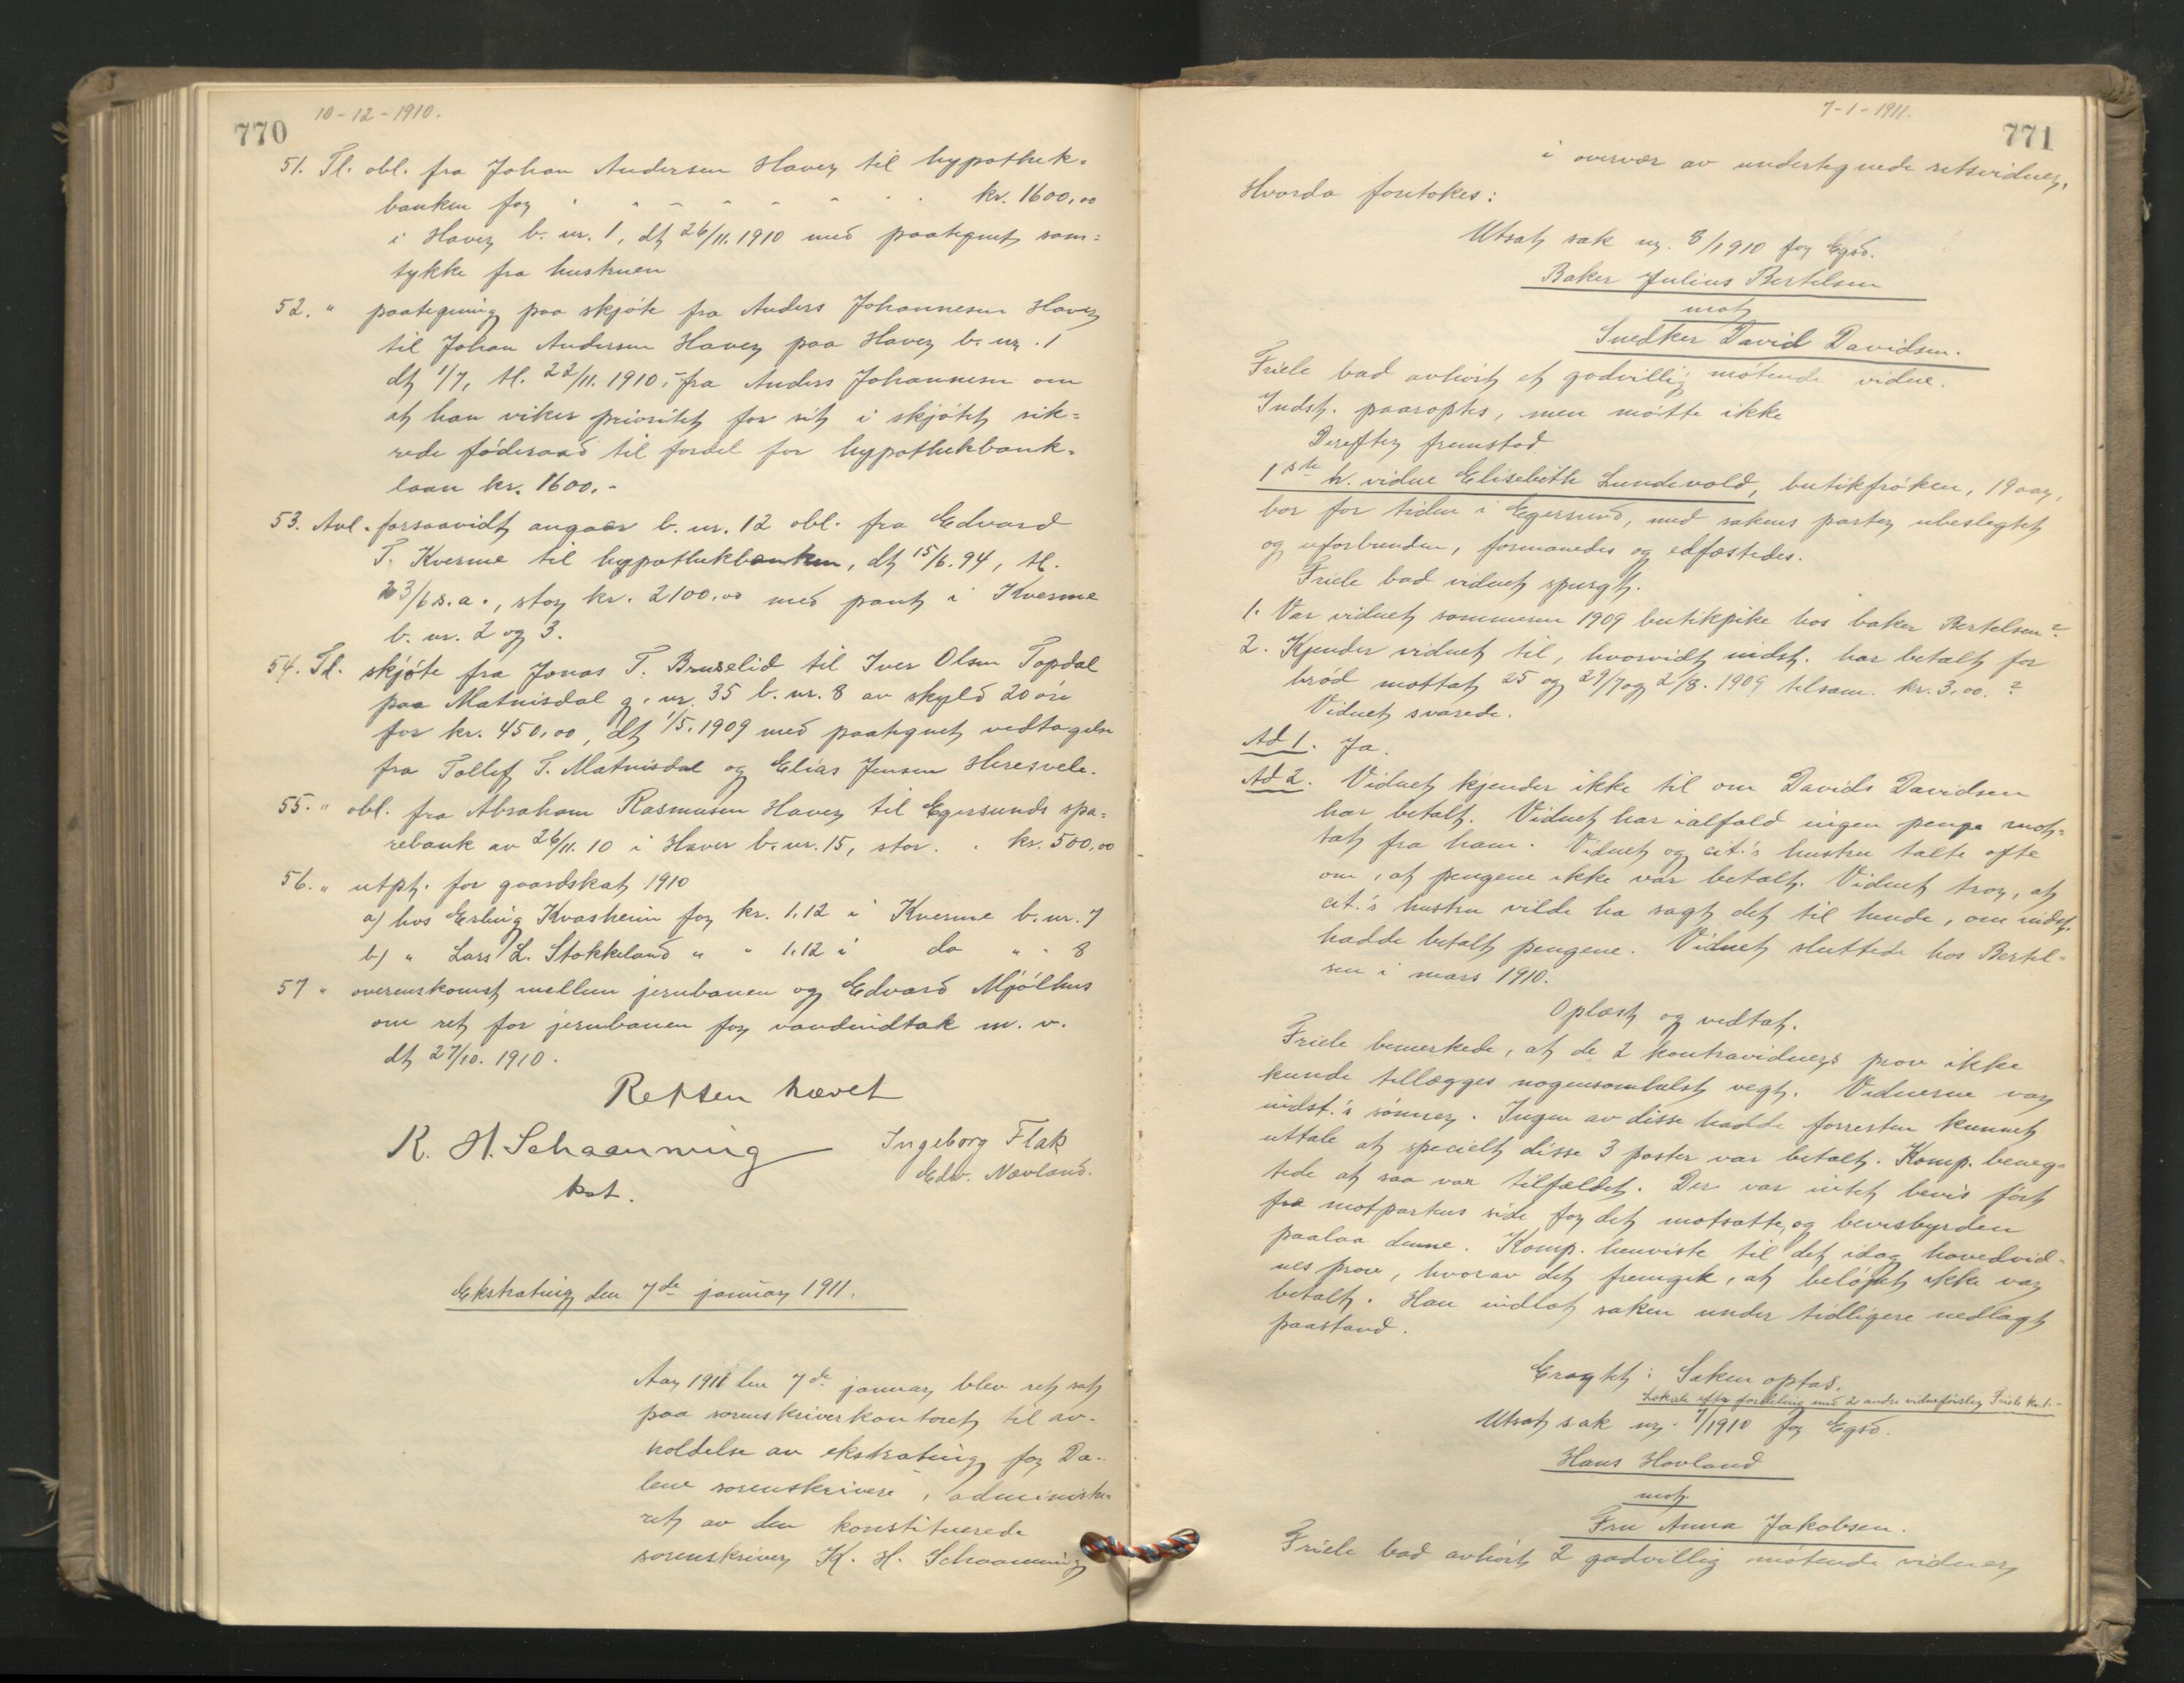 770
10-12-1910.
51. Tl. obl. fra Johan Andersen Haver til hypothek-
banken for kr. 1600,00
i Haver b. nr. 1, dt 26/11. 1910 med paategnet sam-
tykke fra hustruen
52. " paategning paa skjøte fra Anders Johannesen Haver
til Johan Andersen Haver paa Haver b. nr. 1
dt 1/7, tl. 22/11. 1910, - fra Anders Johannesen om
at han viker prioritet for sit i skjøtet sik-
rede føderaad til fordel for hypothekbank-
laan kr. 1600.-
53. Avl. forsaavidt angaar b. nr. 12 obl. fra Edvard
T. Kverme til hypothekbanken, dt 15/6. 94, tl.
23/6 s.a., stor kr. 2100,00 med pant i Kverme
b. nr. 2 og 3.
54. Tl. skjøte fra Jonas T. Bruselid til Iver Olsen Topdal
paa Matnisdal g. nr. 35 b. nr. 8 av skyld 20 øre
for kr. 450,00, dt 1/5. 1909 med paategnet vedtagelse
fra Tollef T. Matnisdal og Elias Jensen Heresvele.
55. " obl. fra Abraham Rasmusen Haver til Egersunds spa-
rebank av 26/11. 10 i Haver b. nr. 15, stor . . kr. 500,00
56. " utpt. for gaardskat 1910
a) hos Erling Kvasheim for kr. 1.12 i Kverme b. nr. 7
b) " Lars L. Stokkeland " " 1.12 i do " " 8
57 " overenskomst mellem jernbanen og Edvard Mjølhus
om ret for jernbanen for vandindtak m. v.
dt 27/10. 1910.
Retten hævet
K. H. Schaanning
kst.
Ingeborg Flak
Edv. Nævland.
Ekstrating den 7de januar 1911.
Aar 1911 den 7de januar blev ret sat
paa sorenskriverkontoret til av-
holdelse av ekstrating for Da-
lene sorenskriveri, administre-
ret av den konstituerede
sorenskriver K. H. Schaanning
7-1-1911.
771
i overvær av undertegnede retsvidner.
Hvorda foretokes:
Utsat sak nr. 8/1910 for Egsd.
Baker Julius Bertelsen
mot
Snedker David Davidsen.
Friele bad avhørt et godvillig møtende vidne.
Indst. paaroptes, men møtte ikke
Derefter fremstod
1ste h. vidne Elisebeth Lundevold, butikfrøken, 19 aar,
bor for tiden i Egersund, med sakens parter ubeslegtet
og uforbunden, formanedes og edfæstedes.
Friele bad vidnet spurgt.
1. Var vidnet sommeren 1909 butikpike hos baker Bertelsen?
2. Kjender vidnet til, hvorvidt indst. har betalt for
brød mottat 25 og 29/7 og 2/8. 1909 tilsam. kr. 3,00.?
Vidnet svarede.
Ad 1. Ja.
Ad 2. Vidnet kjender ikke til om Davids Davidsen
har betalt. Vidnet har ialfald ingen penge mot-
tat fra ham. Vidnet og cit.'s hustru talte ofte
om, at pengene ikke var betalt. Vidnet tror, at
cit.'s hustru vilde ha sagt det til hende, om indst.
hadde betalt pengene. Vidnet sluttede hos Bertel-
sen i mars 1910.
Oplæst og vedtat.
Friele bemerkede, at de 2 kontravidners prov ikke
kunde tillægges nogensomhelst vegt. Vidnerne var
indst.'s sønner. Ingen av disse hadde forresten kunnet
uttale at specielt disse 3 poster var betalt. Komp. beneg-
tede at saa var tilfældet. Der var intet bevis ført
fra motpartens side for det motsatte, og bevisbyrden
paalaa denne. Komp. henviste til det idag hovedvid-
nes prov, hvorav det fremgik, at beløpet ikke var
betalt. Han indlot saken under tidligere nedlagt
paastand.
Eragtet: Saken optas.
Lokale efter fordeling med 2 andre vidneførsler Friele kr. 1.-
Utsat sak nr. 7/1910 for Egsd.
Hans Hovland
mot
Fru Anna Jakobsen.
Friele bad avhørt 2 godvillig møtende vidner